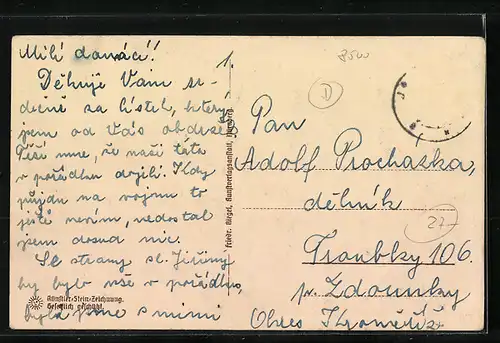 Milí domácí!!
1.
Děkuji Vám sr-
dečně za lístek, který
jsem od Vás obdržel.
Těší mne, že naši táta
v pořádku dojeli. Kdy
půjdu na vojnu to
ještě nevím, nedostal
jsem dosud nic.
Se strany sl. Jiřiny
by bylo vše v pořádku,
byla jsme s nimi
Künstler-Stein-Zeichnung.
Gesetzlich geschützt.
Friedr. Kunstverlagsanstalt,
8500
D
Pan
Adolf Procházka,
dělník
27-
Troubky 106.
pr. Zdounky
Okres Kroměříž